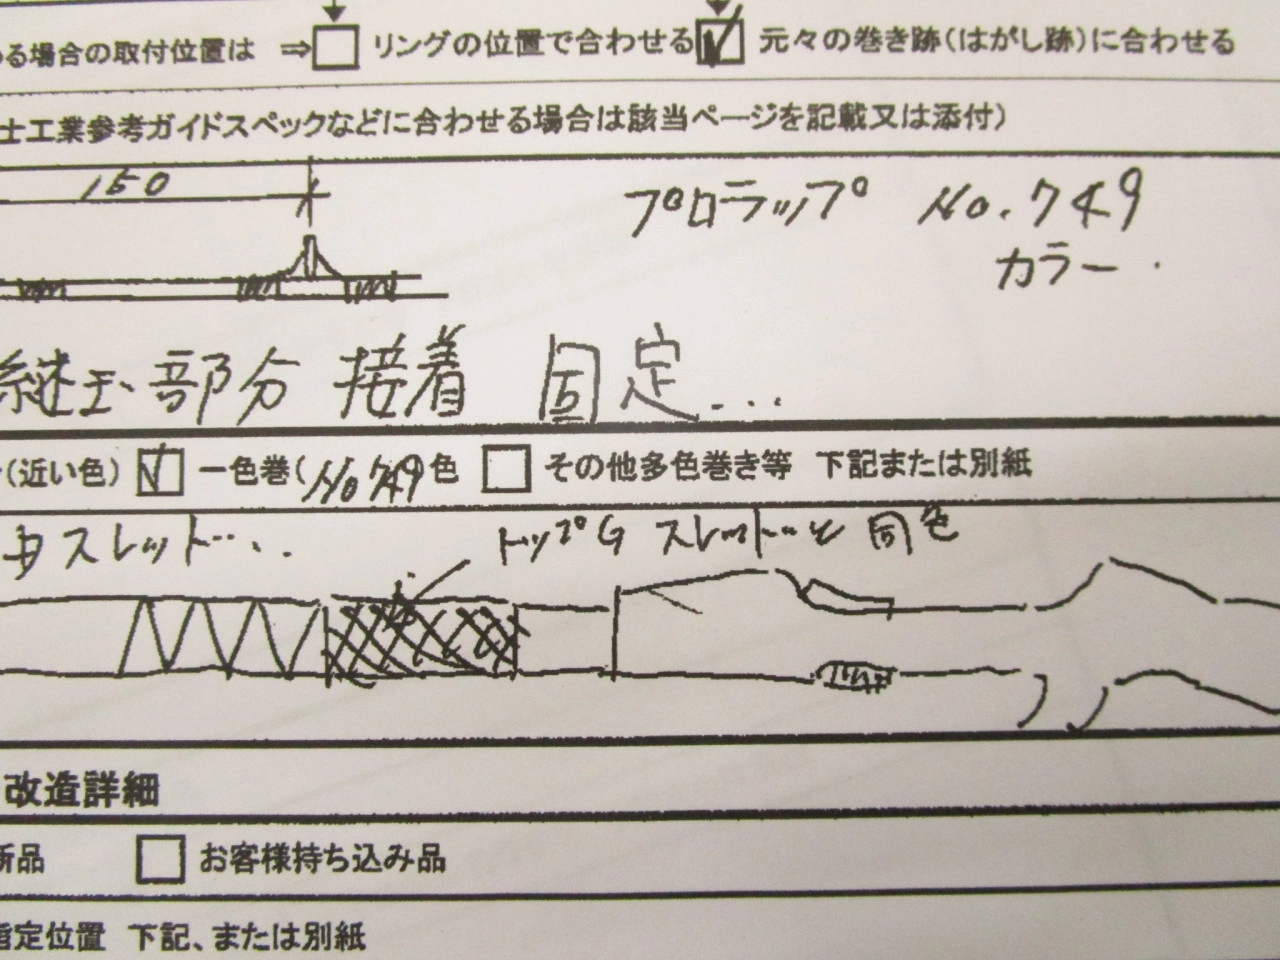 る場合の取付位置は ⇒ □ リングの位置で合わせる ☑ 元々の巻き跡(はがし跡)に合わせる
士工業参考ガイドスペックなどに合わせる場合は該当ページを記載又は添付)
150
プロラップ No.749
カラー.
部分 接着 固定...
(近い色) ☑ 一色巻(No 749色 □ その他多色巻き等 下記または別紙
スレット... トップG スレットと同色
改造詳細
新品 □ お客様持ち込み品
指定位置 下記、または別紙